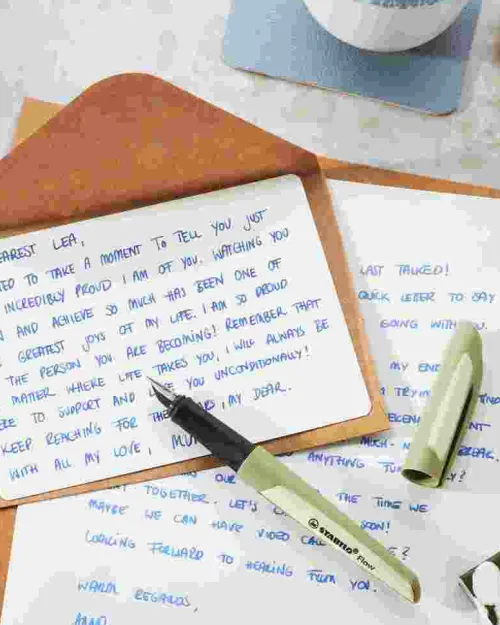 EAREST LEA,
TED TO TAKE A MOMENT TO TELL YOU JUST
INCREDIBLY PROUD I AM OF YOU. WATCHING YOU
AND ACHIEVE SO MUCH HAS BEEN ONE OF
GREATEST JOYS OF MY LIFE. I AM SO PROUD
THE PERSON YOU ARE BECOMING! REMEMBER THAT
MATTER WHERE LIFE TAKES YOU, I WILL ALWAYS BE
TO SUPPORT AND YOU UNCONDITIONALLY!
KEEP REACHING FOR THE , MY DEAR.
WITH ALL MY LOVE,
LAST TALKED!
QUICK LETTER TO SAY
GOING WITH
MY END
MUCH
BREAK.
OUR ANYTHING
TOGETHER. LET'S THE TIME WE
MAYBE WE CAN HAVE VIDEO SOON!
LOOKING FORWARD TO HEARING FROM YOU.
WARM REGARDS,
STABILO® Flow